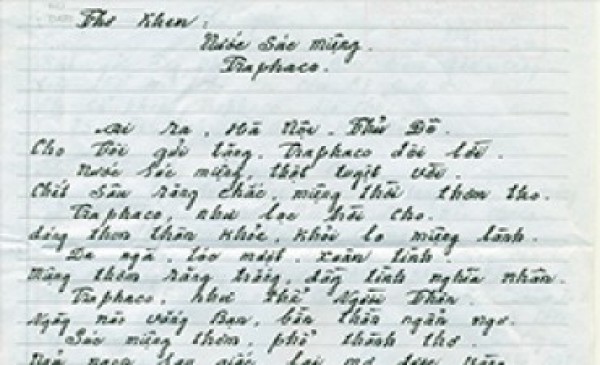 Thơ Khen:
Nước Súc Miệng.
Traphaco.
Ai ra, Hà Nội. Thủ Đô.
Cho Tôi gửi tặng. Traphaco đôi lời.
Nước Súc miệng, thật tuyệt vời.
Chết Sâu răng chắc, miệng thời thơm tho.
Traphaco, như lộc trời cho.
thơm thân khỏe, khỏi lo miệng
Da ngà, tóc mượt, xoăn tinh.
Miệng thơm răng trắng, đầy tình nghĩa nhân.
Traphaco, như thể Người Thân.
Ngày nào vắng Bạn, bần thần ngẩn ngơ.
Súc miệng thơm, phổ thành thơ.
say giấc, lại mơ được